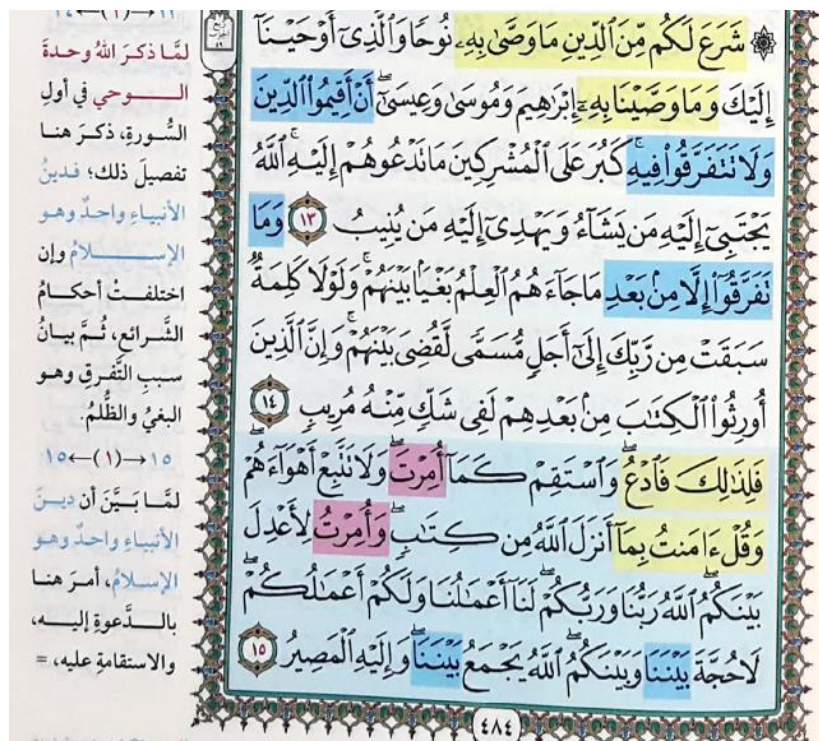 شَرَعَ لَكُم مِّنَ ٱلدِّينِ مَا وَصَّىٰ بِهِۦ نُوحًا وَٱلَّذِىٓ أَوْحَيْنَآ
إِلَيْكَ وَمَا وَصَّيْنَا بِهِۦٓ إِبْرَٰهِيمَ وَمُوسَىٰ وَعِيسَىٰٓ ۖ أَنْ أَقِيمُوا۟ ٱلدِّينَ
وَلَا تَتَفَرَّقُوا۟ فِيهِ ۚ كَبُرَ عَلَى ٱلْمُشْرِكِينَ مَا تَدْعُوهُمْ إِلَيْهِ ۚ ٱللَّهُ
يَجْتَبِىٓ إِلَيْهِ مَن يَشَآءُ وَيَهْدِىٓ إِلَيْهِ مَن يُنِيبُ ١٣ وَمَا
تَفَرَّقُوٓا۟ إِلَّا مِنۢ بَعْدِ مَا جَآءَهُمُ ٱلْعِلْمُ بَغْيًۢا بَيْنَهُمْ ۚ وَلَوْلَا كَلِمَةٌ
سَبَقَتْ مِن رَّبِّكَ إِلَىٰٓ أَجَلٍ مُّسَمًّى لَّقُضِىَ بَيْنَهُمْ ۚ وَإِنَّ ٱلَّذِينَ
أُورِثُوا۟ ٱلْكِتَٰبَ مِنۢ بَعْدِهِمْ لَفِى شَكٍّ مِّنْهُ مُرِيبٍ ١٤
فَلِذَٰلِكَ فَٱدْعُ ۖ وَٱسْتَقِمْ كَمَآ أُمِرْتَ ۖ وَلَا تَتَّبِعْ أَهْوَآءَهُمْ ۖ
وَقُلْ ءَامَنتُ بِمَآ أَنزَلَ ٱللَّهُ مِن كِتَٰبٍ ۖ وَأُمِرْتُ لِأَعْدِلَ
بَيْنَكُمُ ۖ ٱللَّهُ رَبُّنَا وَرَبُّكُمْ ۖ لَنَآ أَعْمَٰلُنَا وَلَكُمْ أَعْمَٰلُكُمْ ۖ
لَا حُجَّةَ بَيْنَنَا وَبَيْنَكُمُ ۖ ٱللَّهُ يَجْمَعُ بَيْنَنَا ۖ وَإِلَيْهِ ٱلْمَصِيرُ ١٥
٤٨٤
لمَّا ذكرَ اللهُ وحدةَ
الوحي في أولِ
السُّورةِ، ذكرَ هنا
تفصيلَ ذلك؛ فدينُ
الأنبياءِ واحدٌ وهو
الإسلامُ وإن
اختلفتْ أحكامُ
الشَّرائعِ، ثُمَّ بيانُ
سببِ التَّفرقِ وهو
البغيُ والظُّلمُ.
١٥ ←(١)→ ١٥
لمَّا بَيَّنَ أن دينَ
الأنبياءِ واحدٌ وهو
الإسلامُ، أمرَ هنا
بالدَّعوةِ إليه،
والاستقامةِ عليه، =